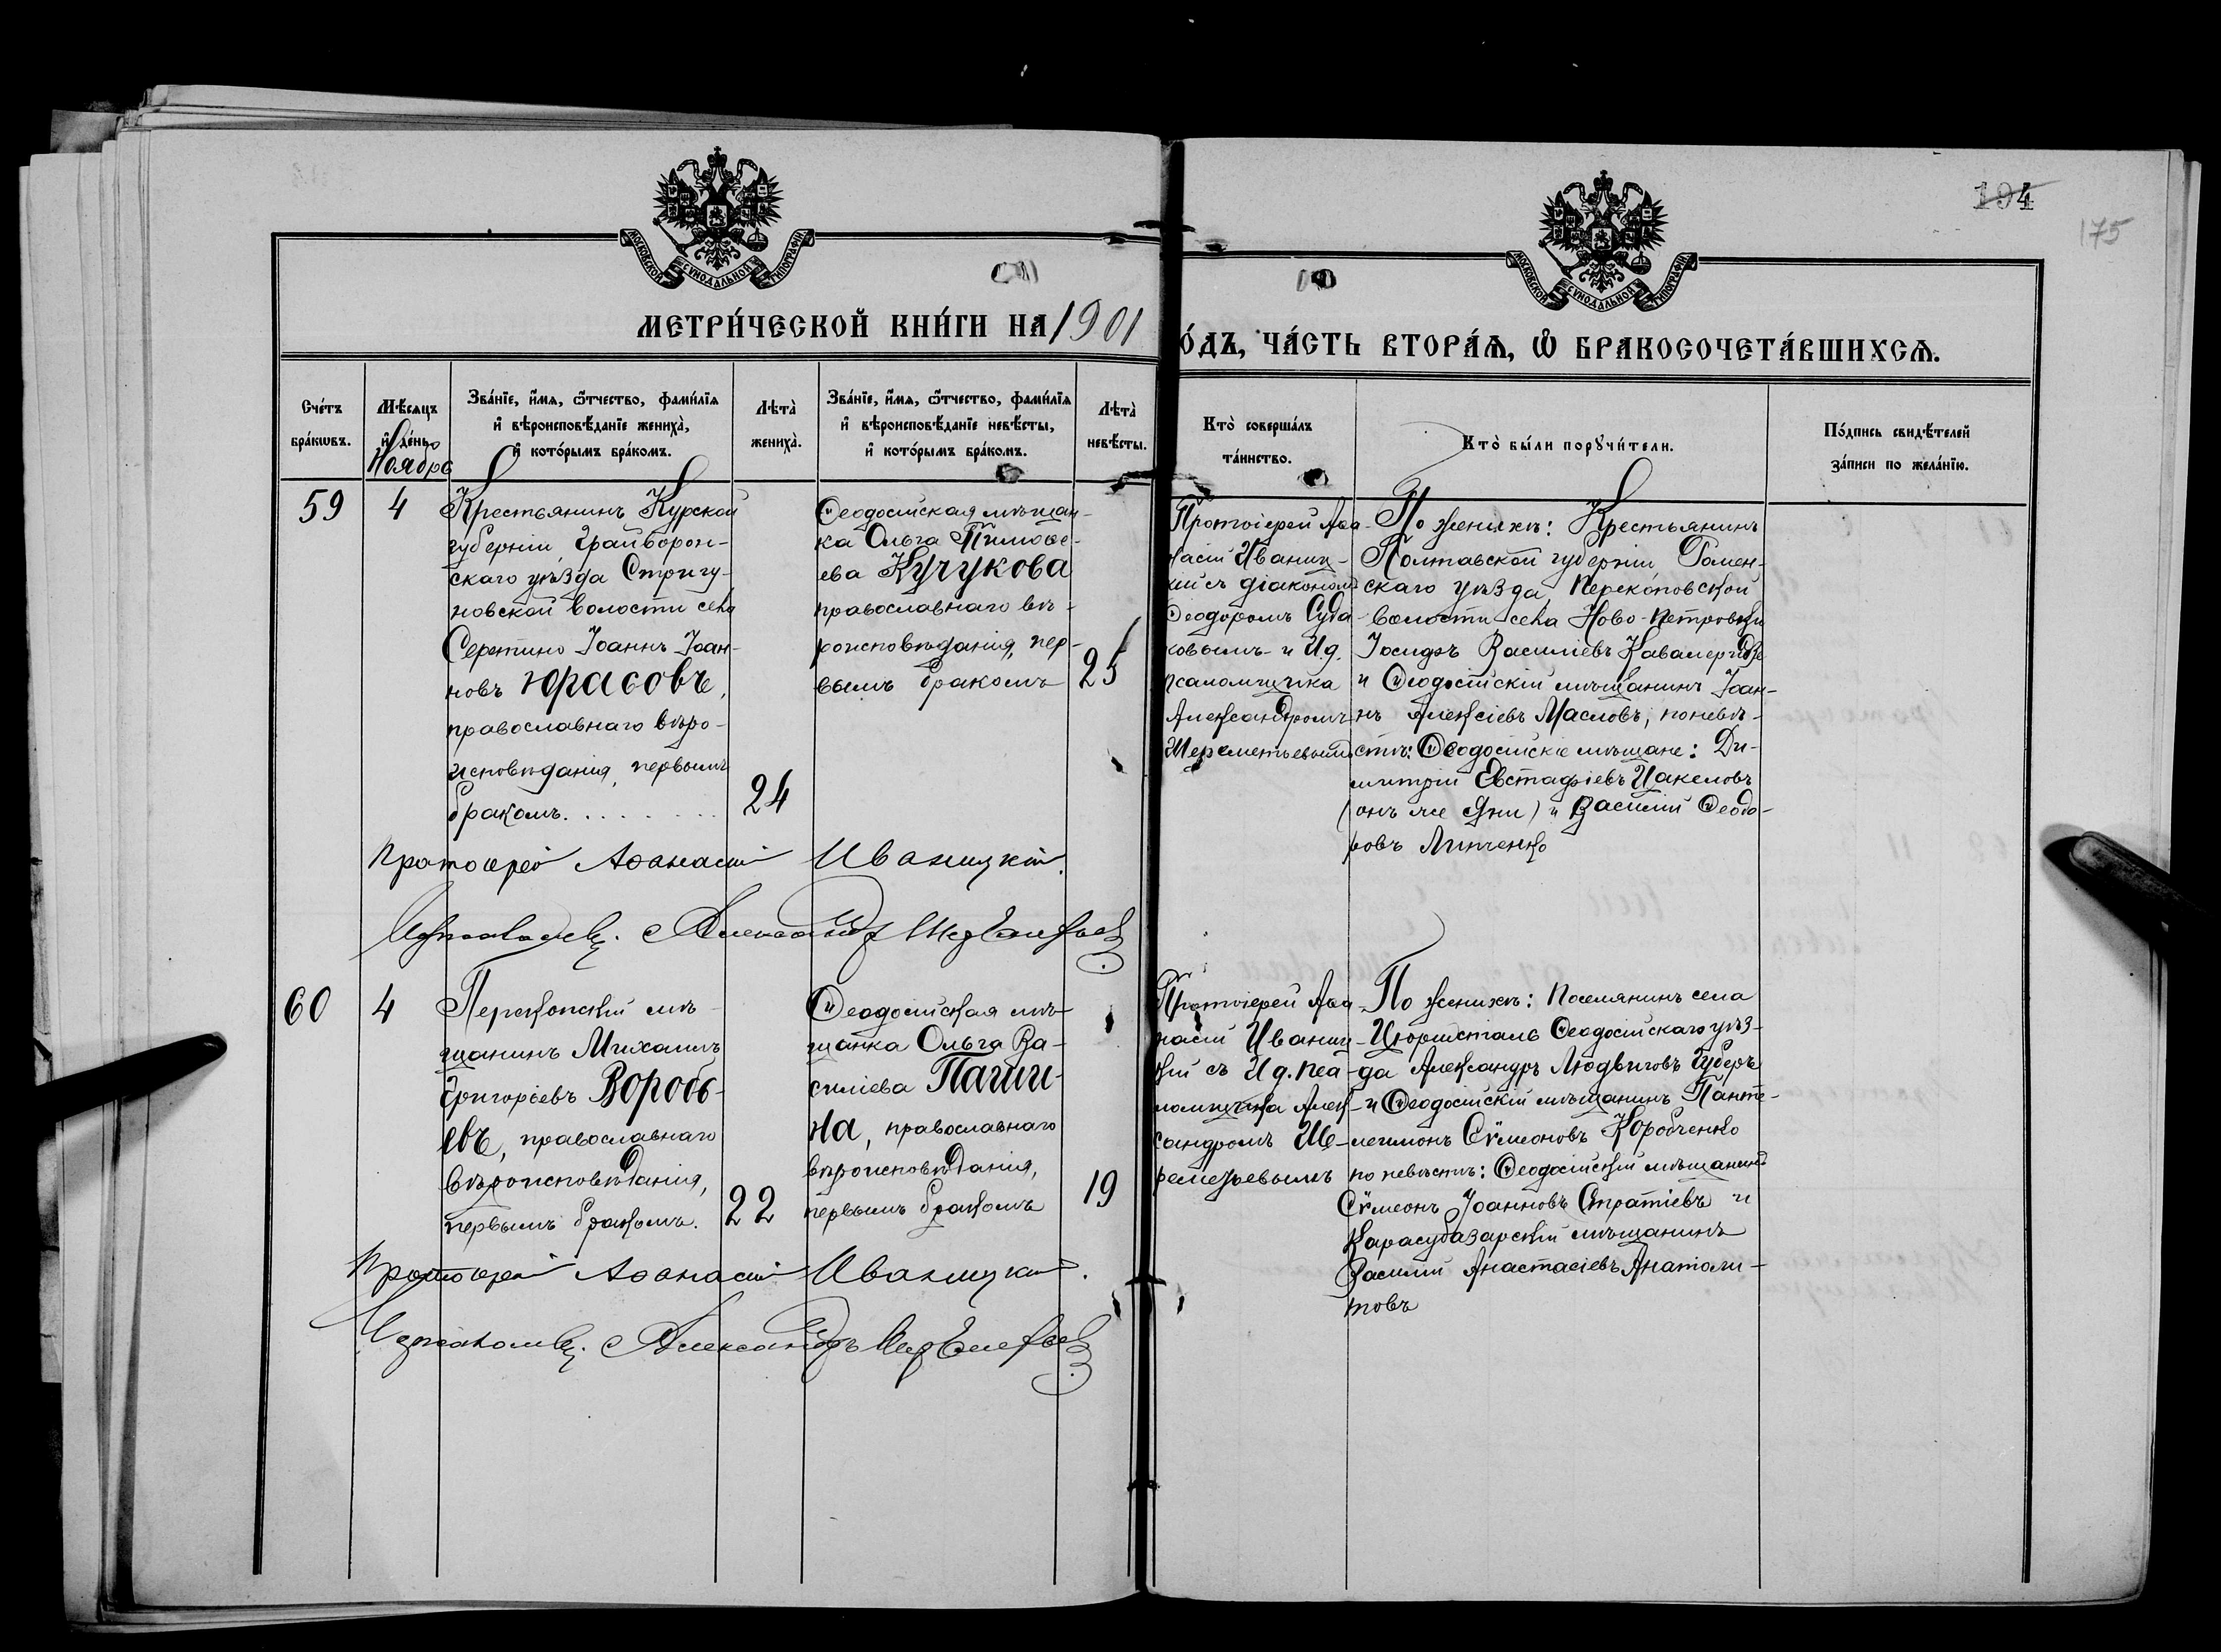 194
175
МОСКОВСКОЙ СѴНОДАЛЬНОЙ ТИПОГРАФІИ
МОСКОВСКОЙ СѴНОДАЛЬНОЙ ТИПОГРАФІИ
МЕТРИ́ЧЕСКОЙ КНИ́ГИ НА 1901
О́ДЪ, ЧА́СТЬ ВТОРА́Ѧ, Ѡ҆ БРАКОСОЧЕТА́ВШИХСѦ.
Сче́тъ
бра́кѡвъ.
Мѣ́сѧцъ
и҆ де́нь.
Ноябрь
Зва́нїе, и҆́мѧ, ѻ҆́тчество, фами́лїѧ
и҆ вѣроисповѣ́данїе жениха̀,
и҆ кото́рымъ бра́комъ.
Лѣта̀
жениха̀.
Зва́нїе, и҆́мѧ, ѻ҆́тчество, фами́лїѧ
и҆ вѣроисповѣ́данїе невѣ́сты,
и҆ кото́рымъ бра́комъ.
Лѣта̀
невѣ́сты.
Кто̀ соверша́лъ
та́инство.
Кто̀ бы́ли порꙋчи́тели.
По́дпись свидѣ́телей
за́писи по жела́нїю.
59
4
Крестьянинъ Курской
губерніи, Грайворон-
скаго уѣзда Стригу-
новской волости села
Серетино Іоаннъ Іоан-
новъ Юрасовъ,
православнаго вѣро-
исповѣданія, первымъ
бракомъ.
24
Ѳеодосійская мѣщан-
ка Ольга Тимоѳе-
ева Кучукова
православнаго вѣ-
роисповѣданія, пер-
вымъ бракомъ
25
Протоіерей Аѳа-
насій Иваниц-
кій съ діакономъ
Ѳеодоромъ Суда-
ковымъ и И.д.
псаломщика
Александромъ
Шереметьевымъ
По женихѣ: Крестьянинъ
Полтавской губерніи, Ромен-
скаго уѣзда, Перекоповской
волости села Ново-Петровки
Іосифъ Василіевъ Кавалеридзе
и Ѳеодосійскій мѣщанинъ Іоан-
нъ Алексіевъ Масловъ, по невѣ-
стѣ: Ѳеодосійскіе мѣщане: Ди-
митрій Евстафіевъ Цакеловъ
(онъ же Яни) и Василій Ѳеодо-
ровъ Линченко
Протоіерей Аѳанасій Иваницкій.
Александръ Шереметьевъ
60
4
Перекопскій мѣ-
щанинъ Михаилъ
Григоріевъ Воробь-
евъ, православнаго
вѣроисповѣданія,
первымъ бракомъ.
22
Ѳеодосійская мѣ-
щанка Ольга Ва-
силіева Паши-
на, православнаго
вѣроисповѣданія,
первымъ бракомъ
19
Протоіерей Аѳа-
насій Иваниц-
кій съ И.д. пса-
ломщика Алек-
сандромъ Ше-
реметьевымъ
По женихѣ: Поселянинъ села
Цюрихсталь Ѳеодосійскаго уѣз-
да Александръ Людвиговъ Губеръ
и Ѳеодосійскій мѣщанинъ Панте-
леимонъ Сѵмеоновъ Коробченко
по невѣстѣ: Ѳеодосійскій мѣщанинъ
Сѵмеонъ Іоанновъ Стратіевъ и
Карасубазарскій мѣщанинъ
Василій Анастасіевъ Анатоли-
товъ
Протоіерей Аѳанасій Иваницкій.
Александръ Шереметьевъ